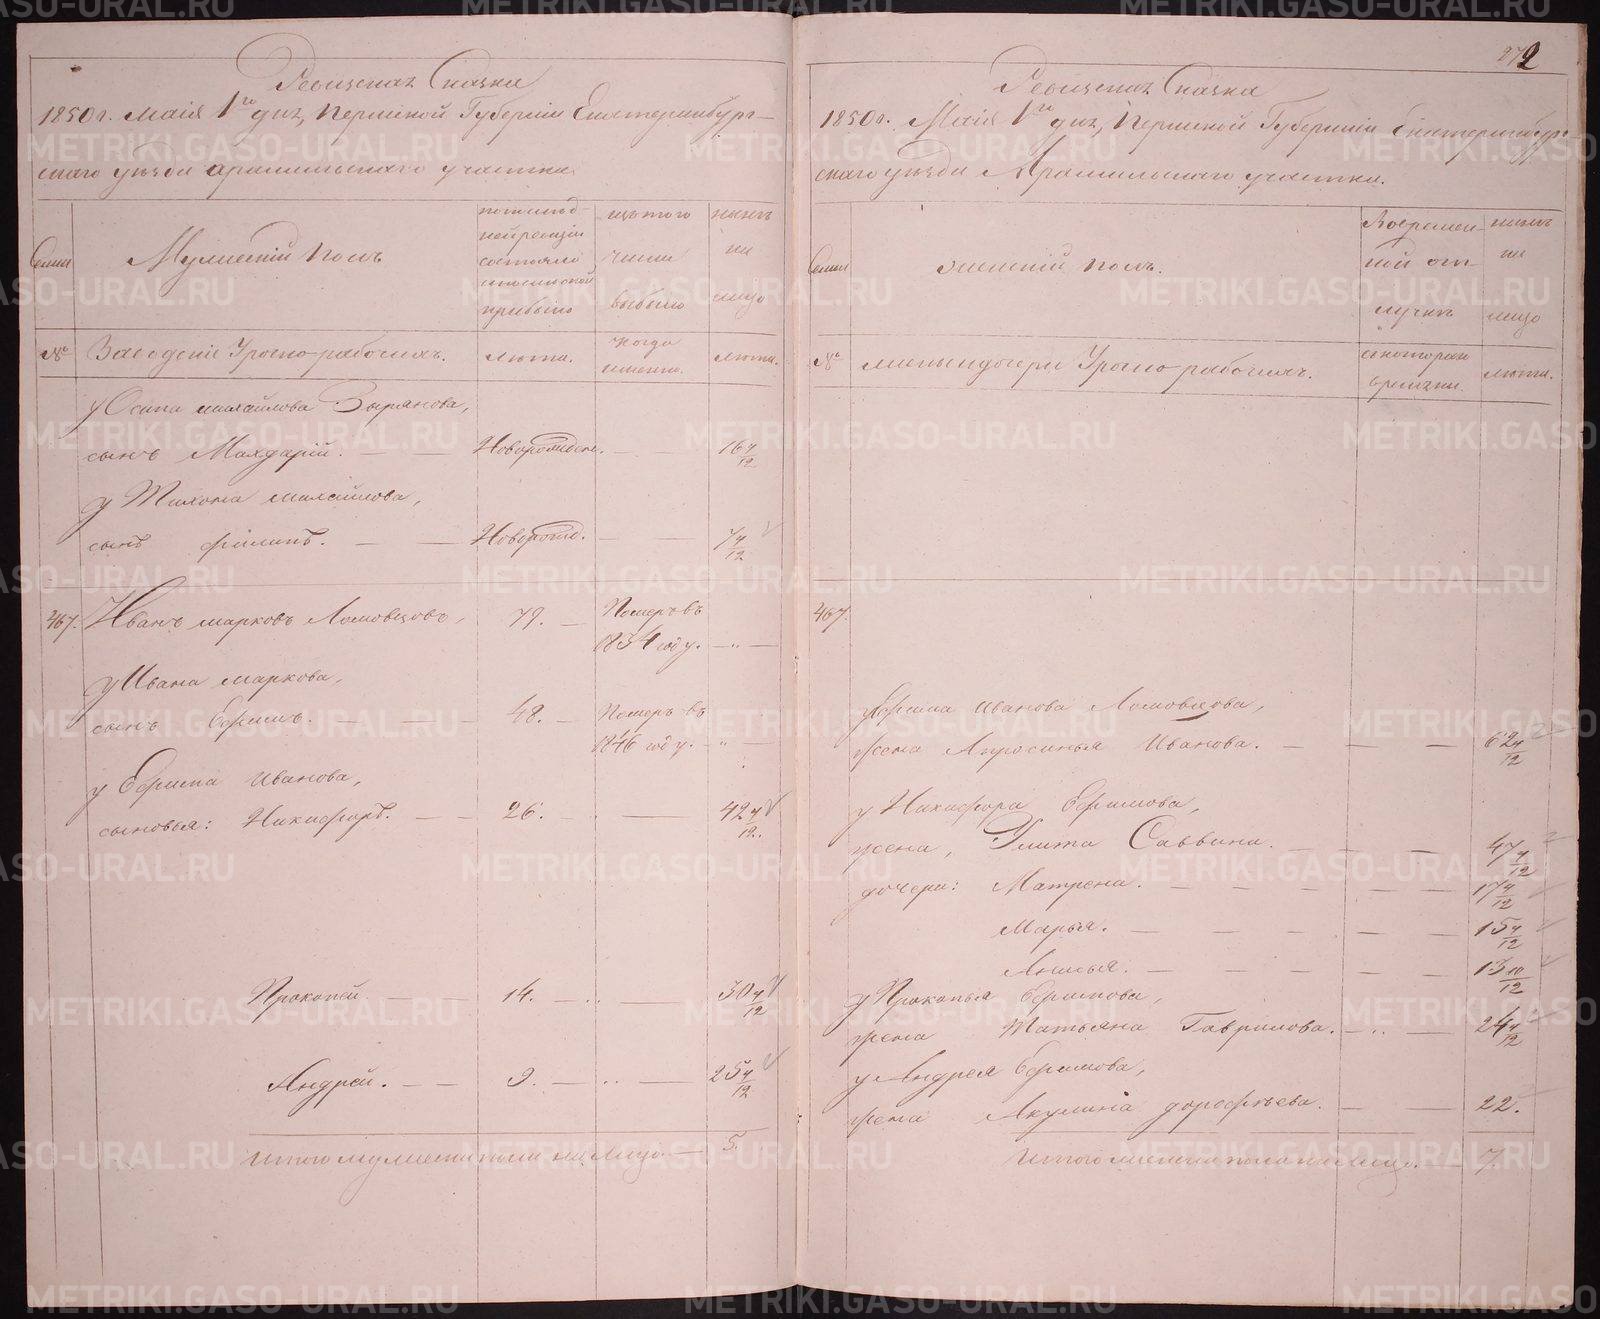 272
Ревизская Сказка
1850 г. Маія 1го дня, Пермской Губерніи Екатеринбург-
скаго уѣзда Арамильскаго участка
Семьи
Мужескій полъ
по послѣд-
ней ревизіи
состояло
и послѣ оной
прибыло
изъ того
числа
выбыло
нынѣ
на
лицо
№
Заводскіе Урочно-рабочихъ.
лѣта.
когда
именно.
лѣта.
у Осипа михайлова Зырянова,
сынъ Мардарій. Новорожден. 16 4/12
у Тихона михайлова,
сынъ филипъ. Новорожд. 7 4/12
467. Иванъ марковъ Ломовцовъ, 79. Померъ въ
1834 году. — „ —
у Ивана маркова,
сынъ Ефимъ. 48. Померъ въ
1846 году. — „ —
у Ефима Иванова,
сыновья: Никифоръ. 26. 42 4/12
Прокопей 14. 30 4/12
Андрей. 9. 25 4/12
Итого мужеска пола на лицо. — 5.
Ревизская Сказка
1850 г. Маія 1го дня, Пермской Губерніи Екатеринбург-
скаго уѣзда Арамильскаго участка.
Семьи
женскій полъ.
Во времен-
ной от-
лучкѣ
нынѣ
на
лицо
№
жены и дочери Урочно рабочихъ.
с которого
времени.
лѣта.
467.
у Ефима Иванова Ломовцова,
жена Апросинья Иванова. 62 4/12
у Никифора Ефимова,
жена, Улита Саввина. 47 4/12
дочери: Матрена. 17 4/12
Марья. 15 4/12
Анисья. 13 10/12
у Прокопья Ефимова,
жена Татьяна Гаврилова. 24 4/12
у Андрея Ефимова,
жена Акулина дорофѣева. 22.
Итого женска пола на лицо. 7.
METRIKI.GASO-URAL.RU